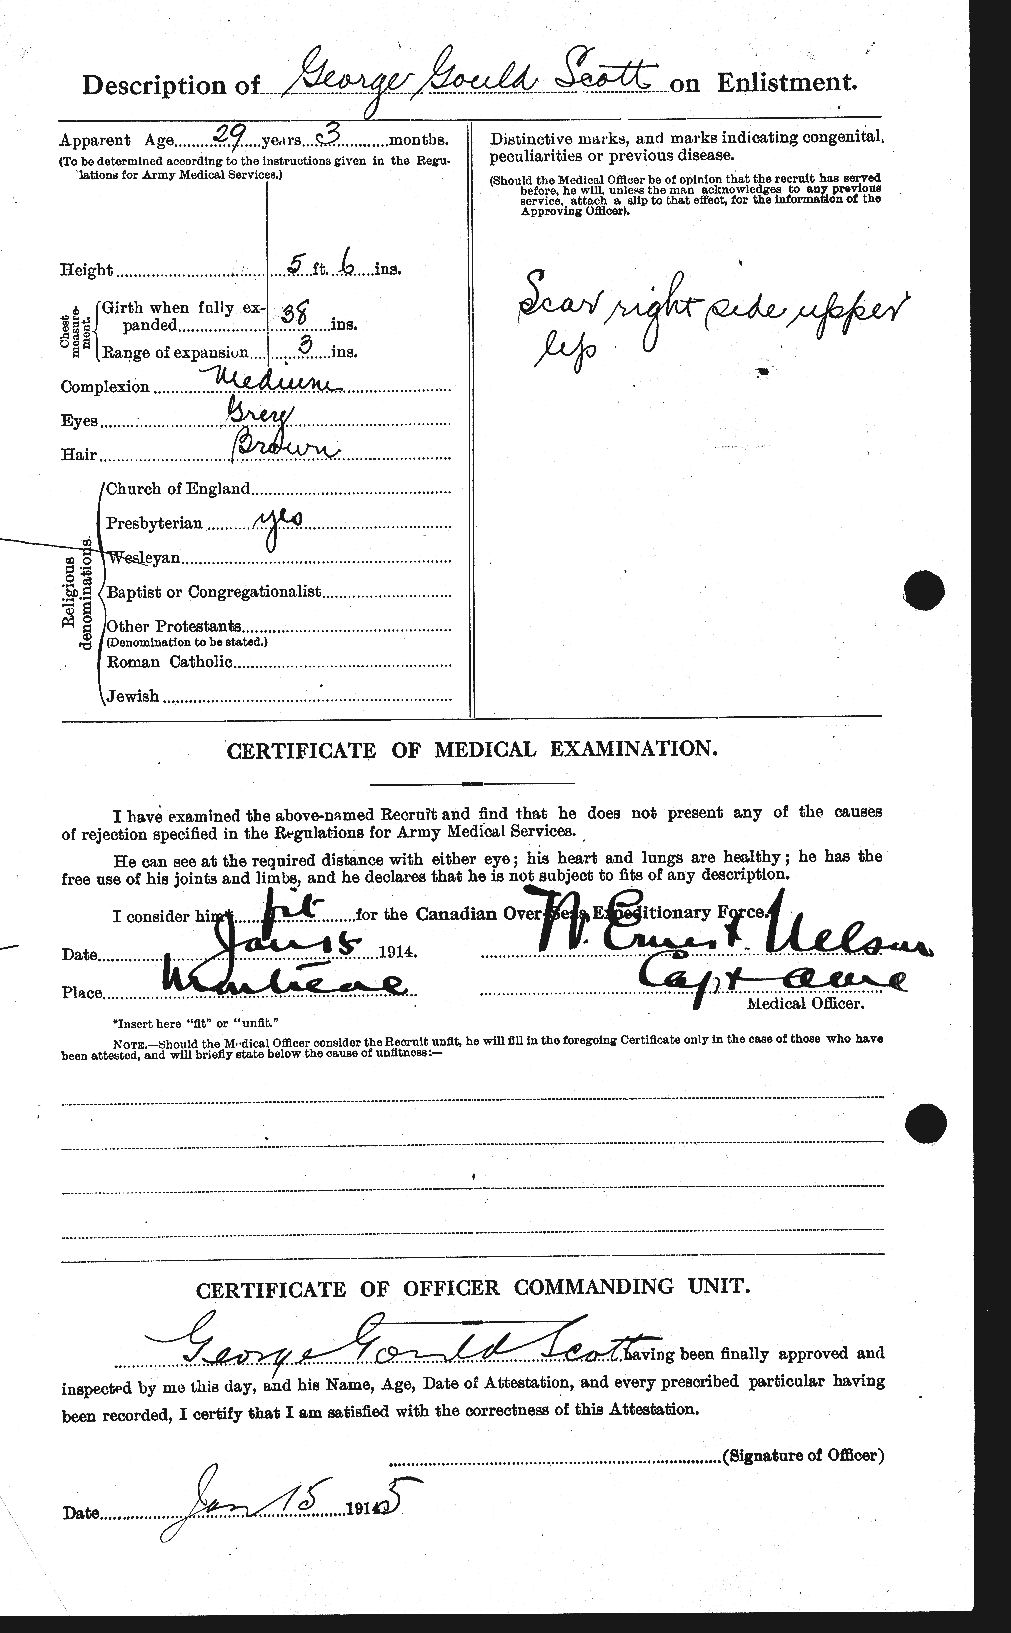 Description of George Gould Scott on Enlistment.
Apparent Age 29 years 3 months.
(To be determined according to the instructions given in the Regu-
lations for Army Medical Services.)
Height 5 ft. 6 ins.
Chest measure-ment.
Girth when fully ex-
panded 38 ins.
Range of expansion 3 ins.
Complexion Medium
Eyes Grey
Hair Brown
Religious denominations.
Church of England
Presbyterian yes
Wesleyan
Baptist or Congregationalist
Other Protestants
(Denomination to be stated.)
Roman Catholic
Jewish
Distinctive marks, and marks indicating congenital,
peculiarities or previous disease.
(Should the Medical Officer be of opinion that the recruit has served
before, he will, unless the man acknowledges to any previous
service, attach a slip to that effect, for the information of the
Approving Officer).
Scar right side upper
lip
CERTIFICATE OF MEDICAL EXAMINATION.
I have examined the above-named Recruit and find that he does not present any of the causes
of rejection specified in the Regulations for Army Medical Services.
He can see at the required distance with either eye; his heart and lungs are healthy; he has the
free use of his joints and limbs, and he declares that he is not subject to fits of any description.
I consider him* fit for the Canadian Over-Seas Expeditionary Force.
Date Jan 15 1914. W. Ernest Nelson
Place Montreal Capt
Medical Officer.
*Insert here "fit" or "unfit."
NOTE.—Should the Medical Officer consider the Recruit unfit, he will fill in the foregoing Certificate only in the case of those who have
been attested, and will briefly state below the cause of unfitness:—
CERTIFICATE OF OFFICER COMMANDING UNIT.
George Gould Scott having been finally approved and
inspected by me this day, and his Name, Age, Date of Attestation, and every prescribed particular having
been recorded, I certify that I am satisfied with the correctness of this Attestation.
(Signature of Officer)
Date Jan 15 1915